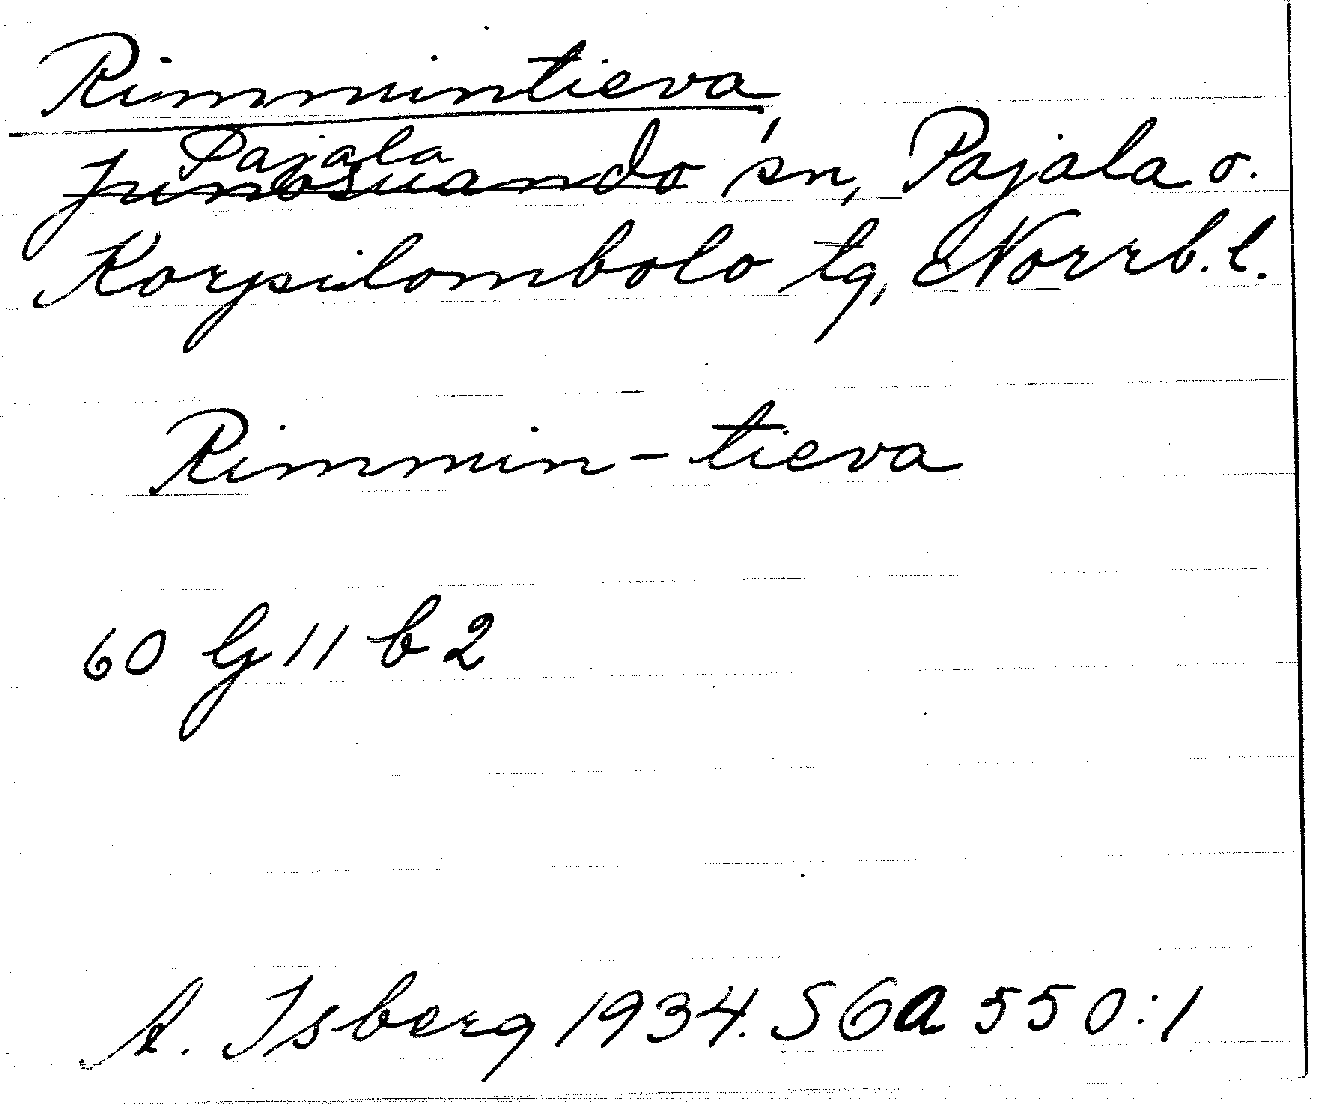 Rimmintieva
Pajala
Junosuando sn, Pajala o.
Korpilombolo tg, Norrb. l.
Rimmin-tieva
60 G 11 b 2
A. Isberg 1934. SGa 550:1